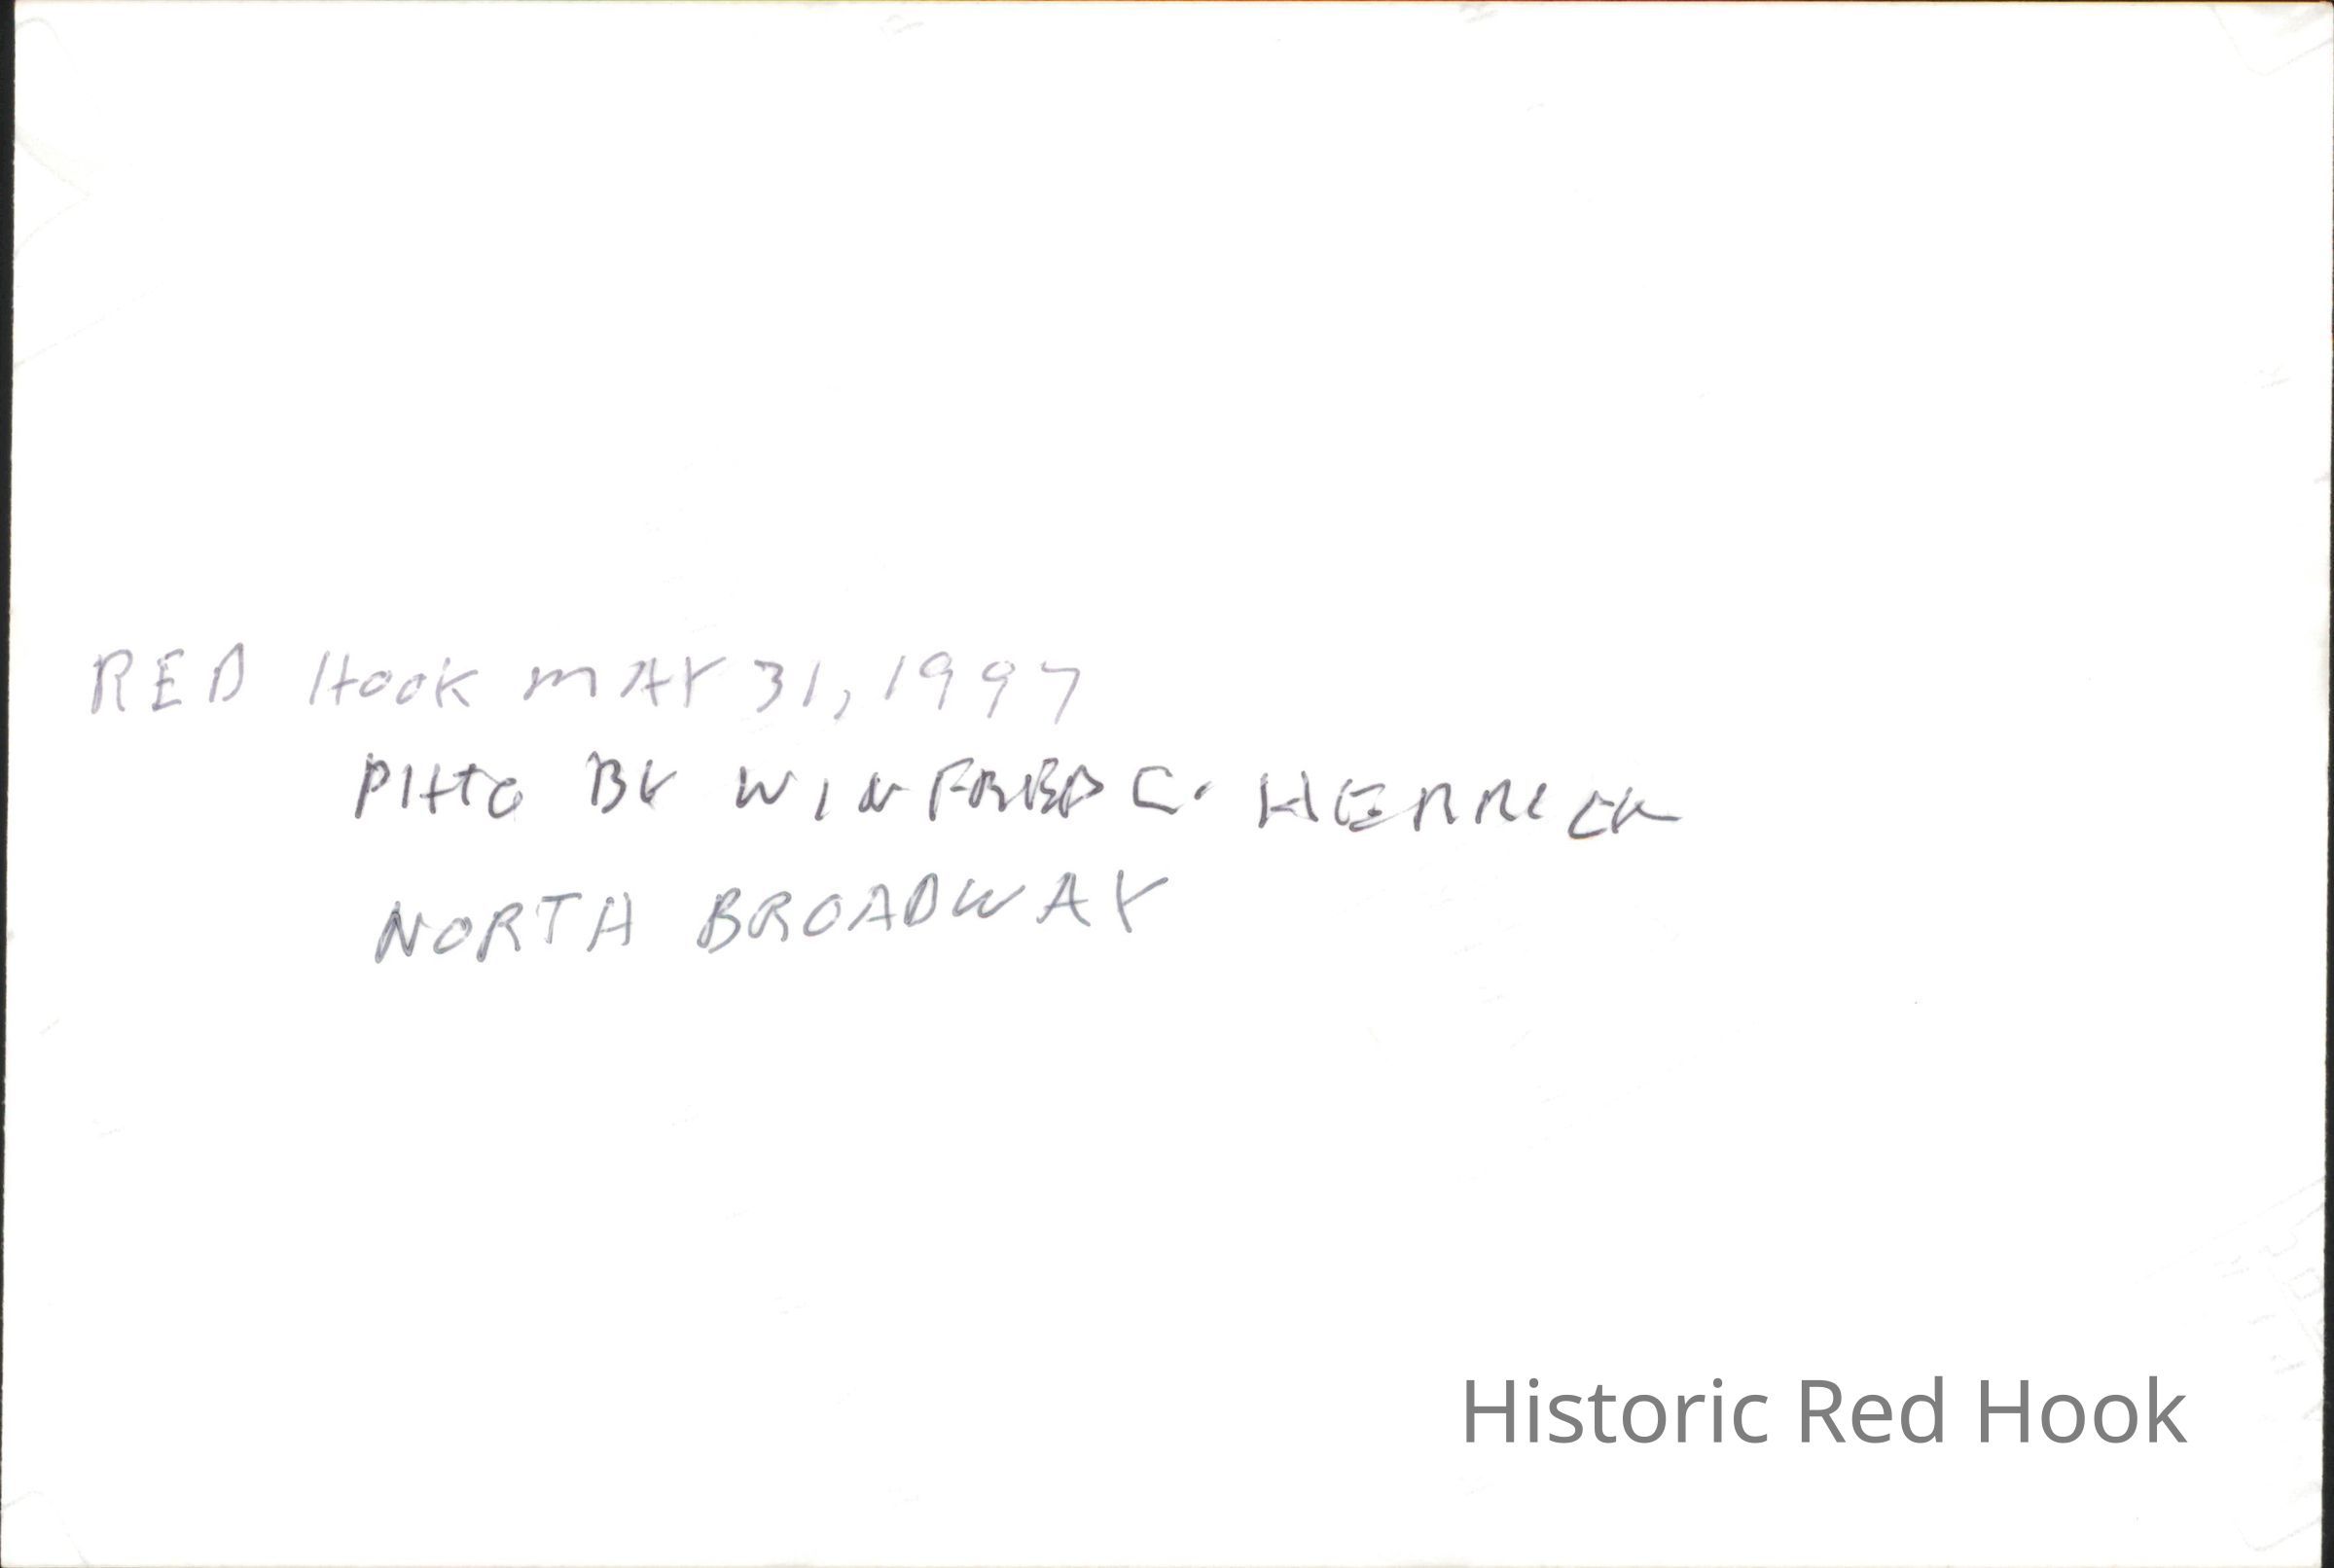 RED HOOK MAY 31, 1997
PHTO BY WINFRED C. HERRICK
NORTH BROADWAY
Historic Red Hook